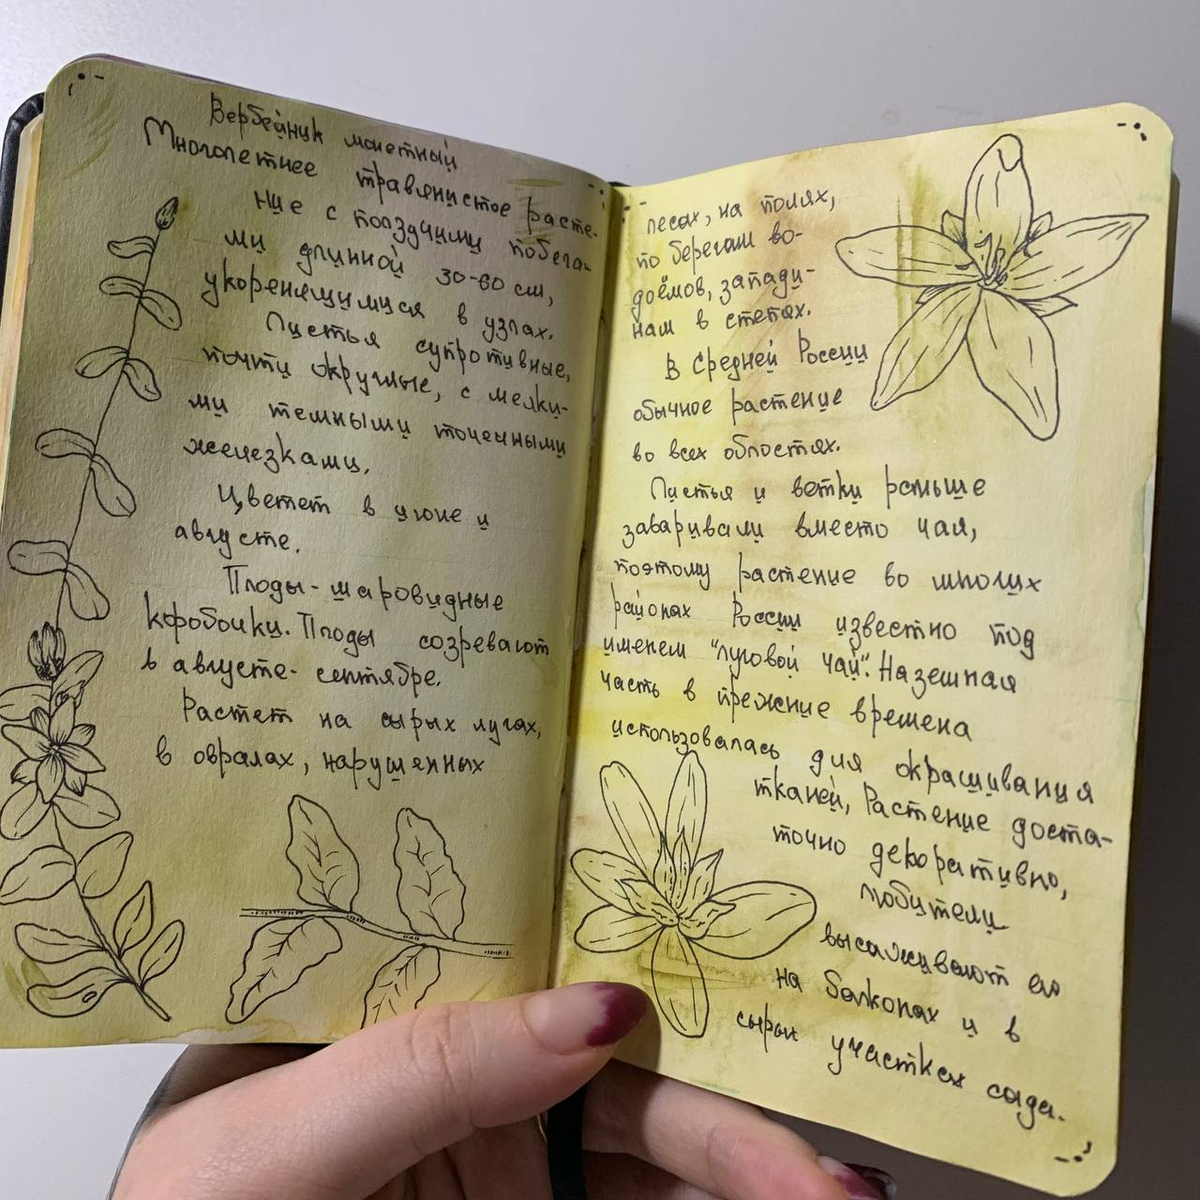 Вербейник монетный
Многолетнее травянистое расте-
ние с поздчими побега-
ми длинной 30-60 см,
укоренящимися в узлах.
Листья супротивные,
почти округлые, с мелки-
ми темными точечными
железками.
Цветет в июне и
августе.
Плоды-шаровидные
коробочки. Плоды созревают
в августе- сентябре.
Растет на сырых лугах,
в овралах, нарушенных
лесах, на полях,
по берегам во-
доёмов, запади-
нам в степях.
В Средней России
обычное растение
во всех облостях.
Листья и ветки раньше
заваривали вместо чая,
поэтому растение во многих
районах России известно под
именем "луговой чай". Наземная
часть в прежние времена
использовалась для окрашивания
тканей, Растение доста-
точно декоративно,
любители
высаживают его
на балконах и в
сырых участках сада.